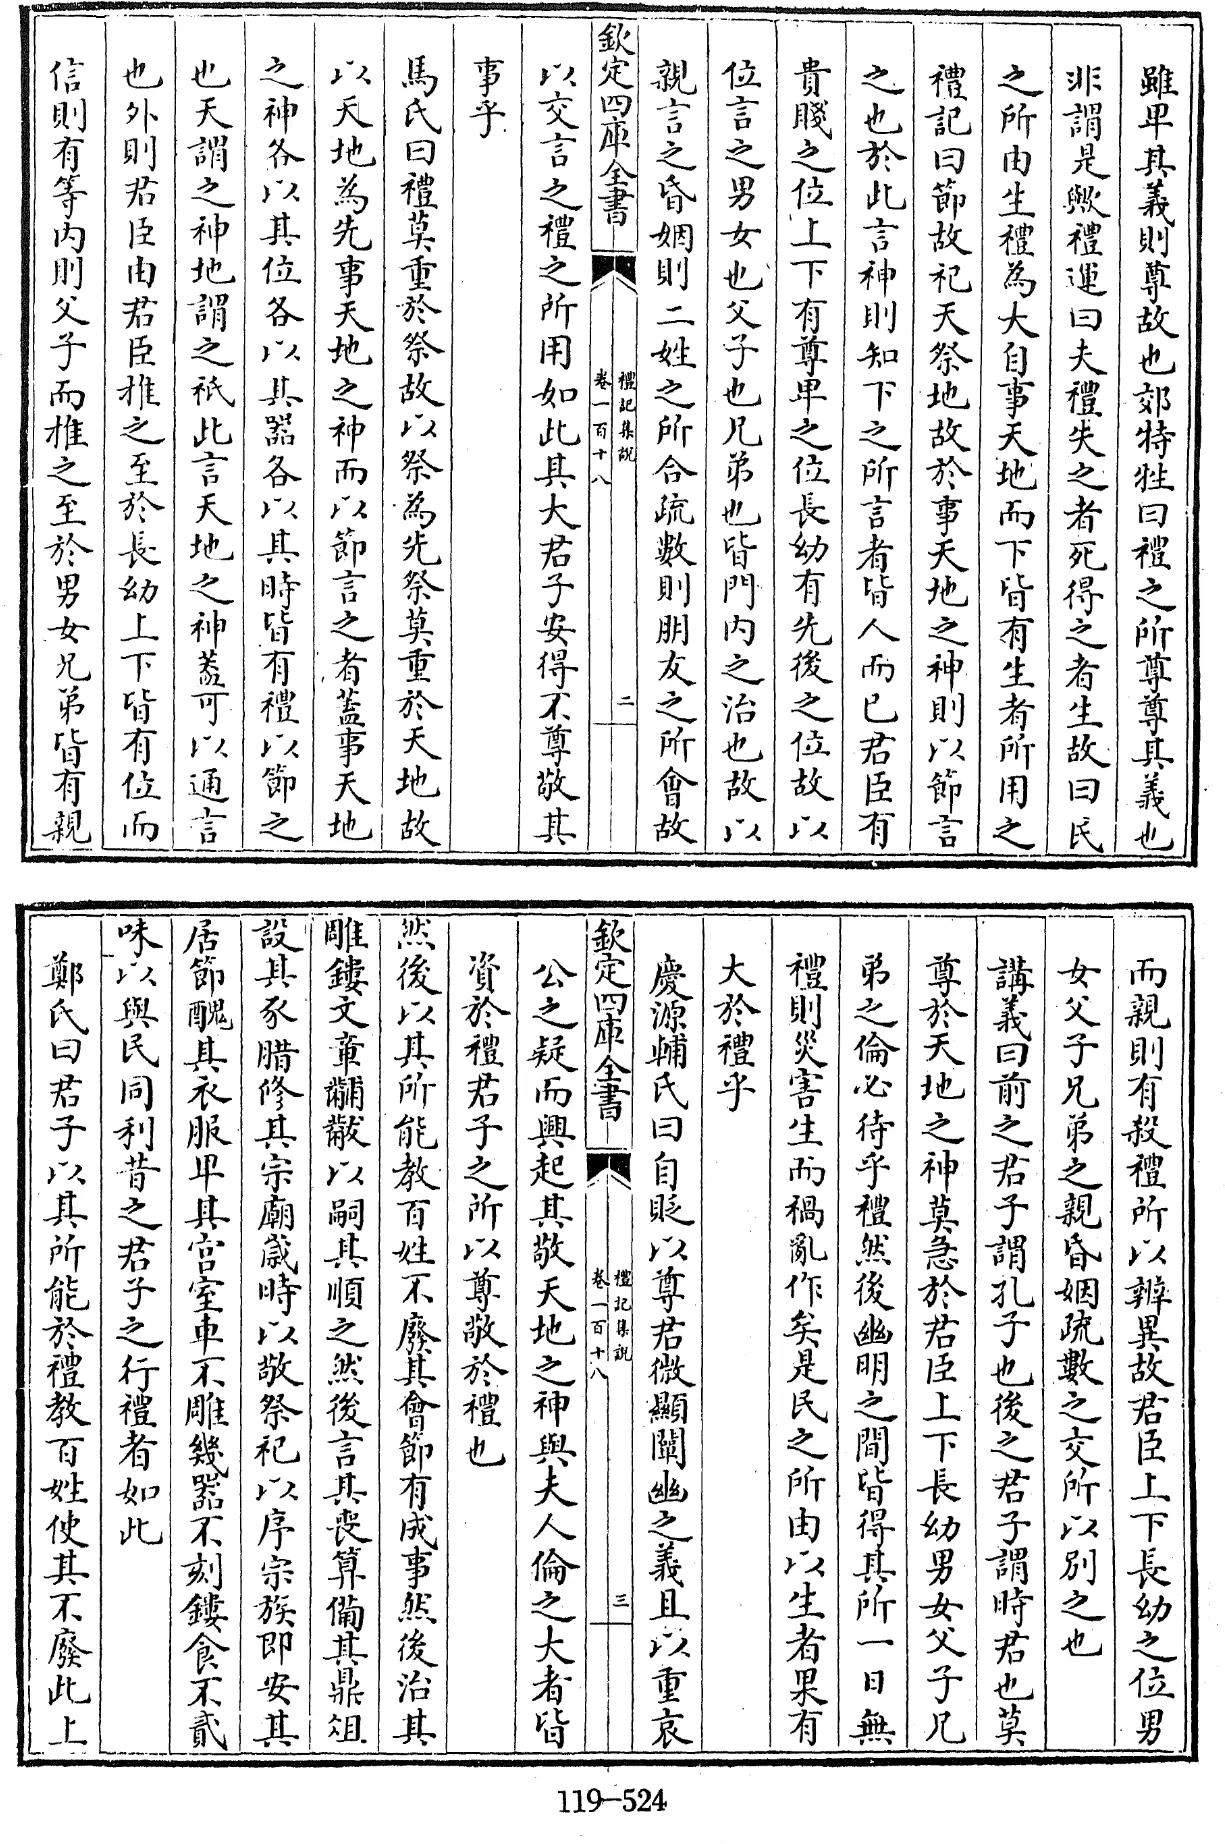 雖卑其義則尊故也郊特牲曰禮之所尊尊其義也
非謂是歟禮運曰夫禮失之者死得之者生故曰民
之所由生禮為大自事天地而下皆有生者所用之
禮記曰節故祀天祭地故於事天地之神則以節言
之也於此言神則知下之所言者皆人而已君臣有
貴賤之位上下有尊卑之位長幼有先後之位故以
位言之男女也父子也兄弟也皆門内之治也故以
親言之昏姻則二姓之所合疏數則朋友之所會故
欽定四庫全書
禮記集說
卷一百十八
二
以交言之禮之所用如此其大君子安得不尊敬其
事乎
馬氏曰禮莫重於祭故以祭為先祭莫重於天地故
以天地為先事天地之神而以節言之者蓋事天地
之神各以其位各以其器各以其時皆有禮以節之
也天謂之神地謂之祇此言天地之神蓋可以通言
也外則君臣由君臣推之至於長幼上下皆有位而
信則有等内則父子而推之至於男女兄弟皆有親
而親則有殺禮所以辨異故君臣上下長幼之位男
女父子兄弟之親昏姻疏數之交所以別之也
講義曰前之君子謂孔子也後之君子謂時君也莫
尊於天地之神莫急於君臣上下長幼男女父子兄
弟之倫必待乎禮然後幽明之間皆得其所一日無
禮則災害生而禍亂作矣是民之所由以生者果有
大於禮乎
慶源輔氏曰自貶以尊君微顯闡幽之義且以重哀
欽定四庫全書
禮記集說
卷一百十八
三
公之疑而興起其敬天地之神與夫人倫之大者皆
資於禮君子之所以尊敬於禮也
然後以其所能教百姓不廢其會節有成事然後治其
雕鏤文章黼黻以嗣其順之然後言其喪算備其鼎俎
設其豕腊修其宗廟歲時以敬祭祀以序宗族即安其
居節醜其衣服卑其宫室車不雕幾器不刻鏤食不貳
味以與民同利昔之君子之行禮者如此
鄭氏曰君子以其所能於禮教百姓使其不廢此上
119-524